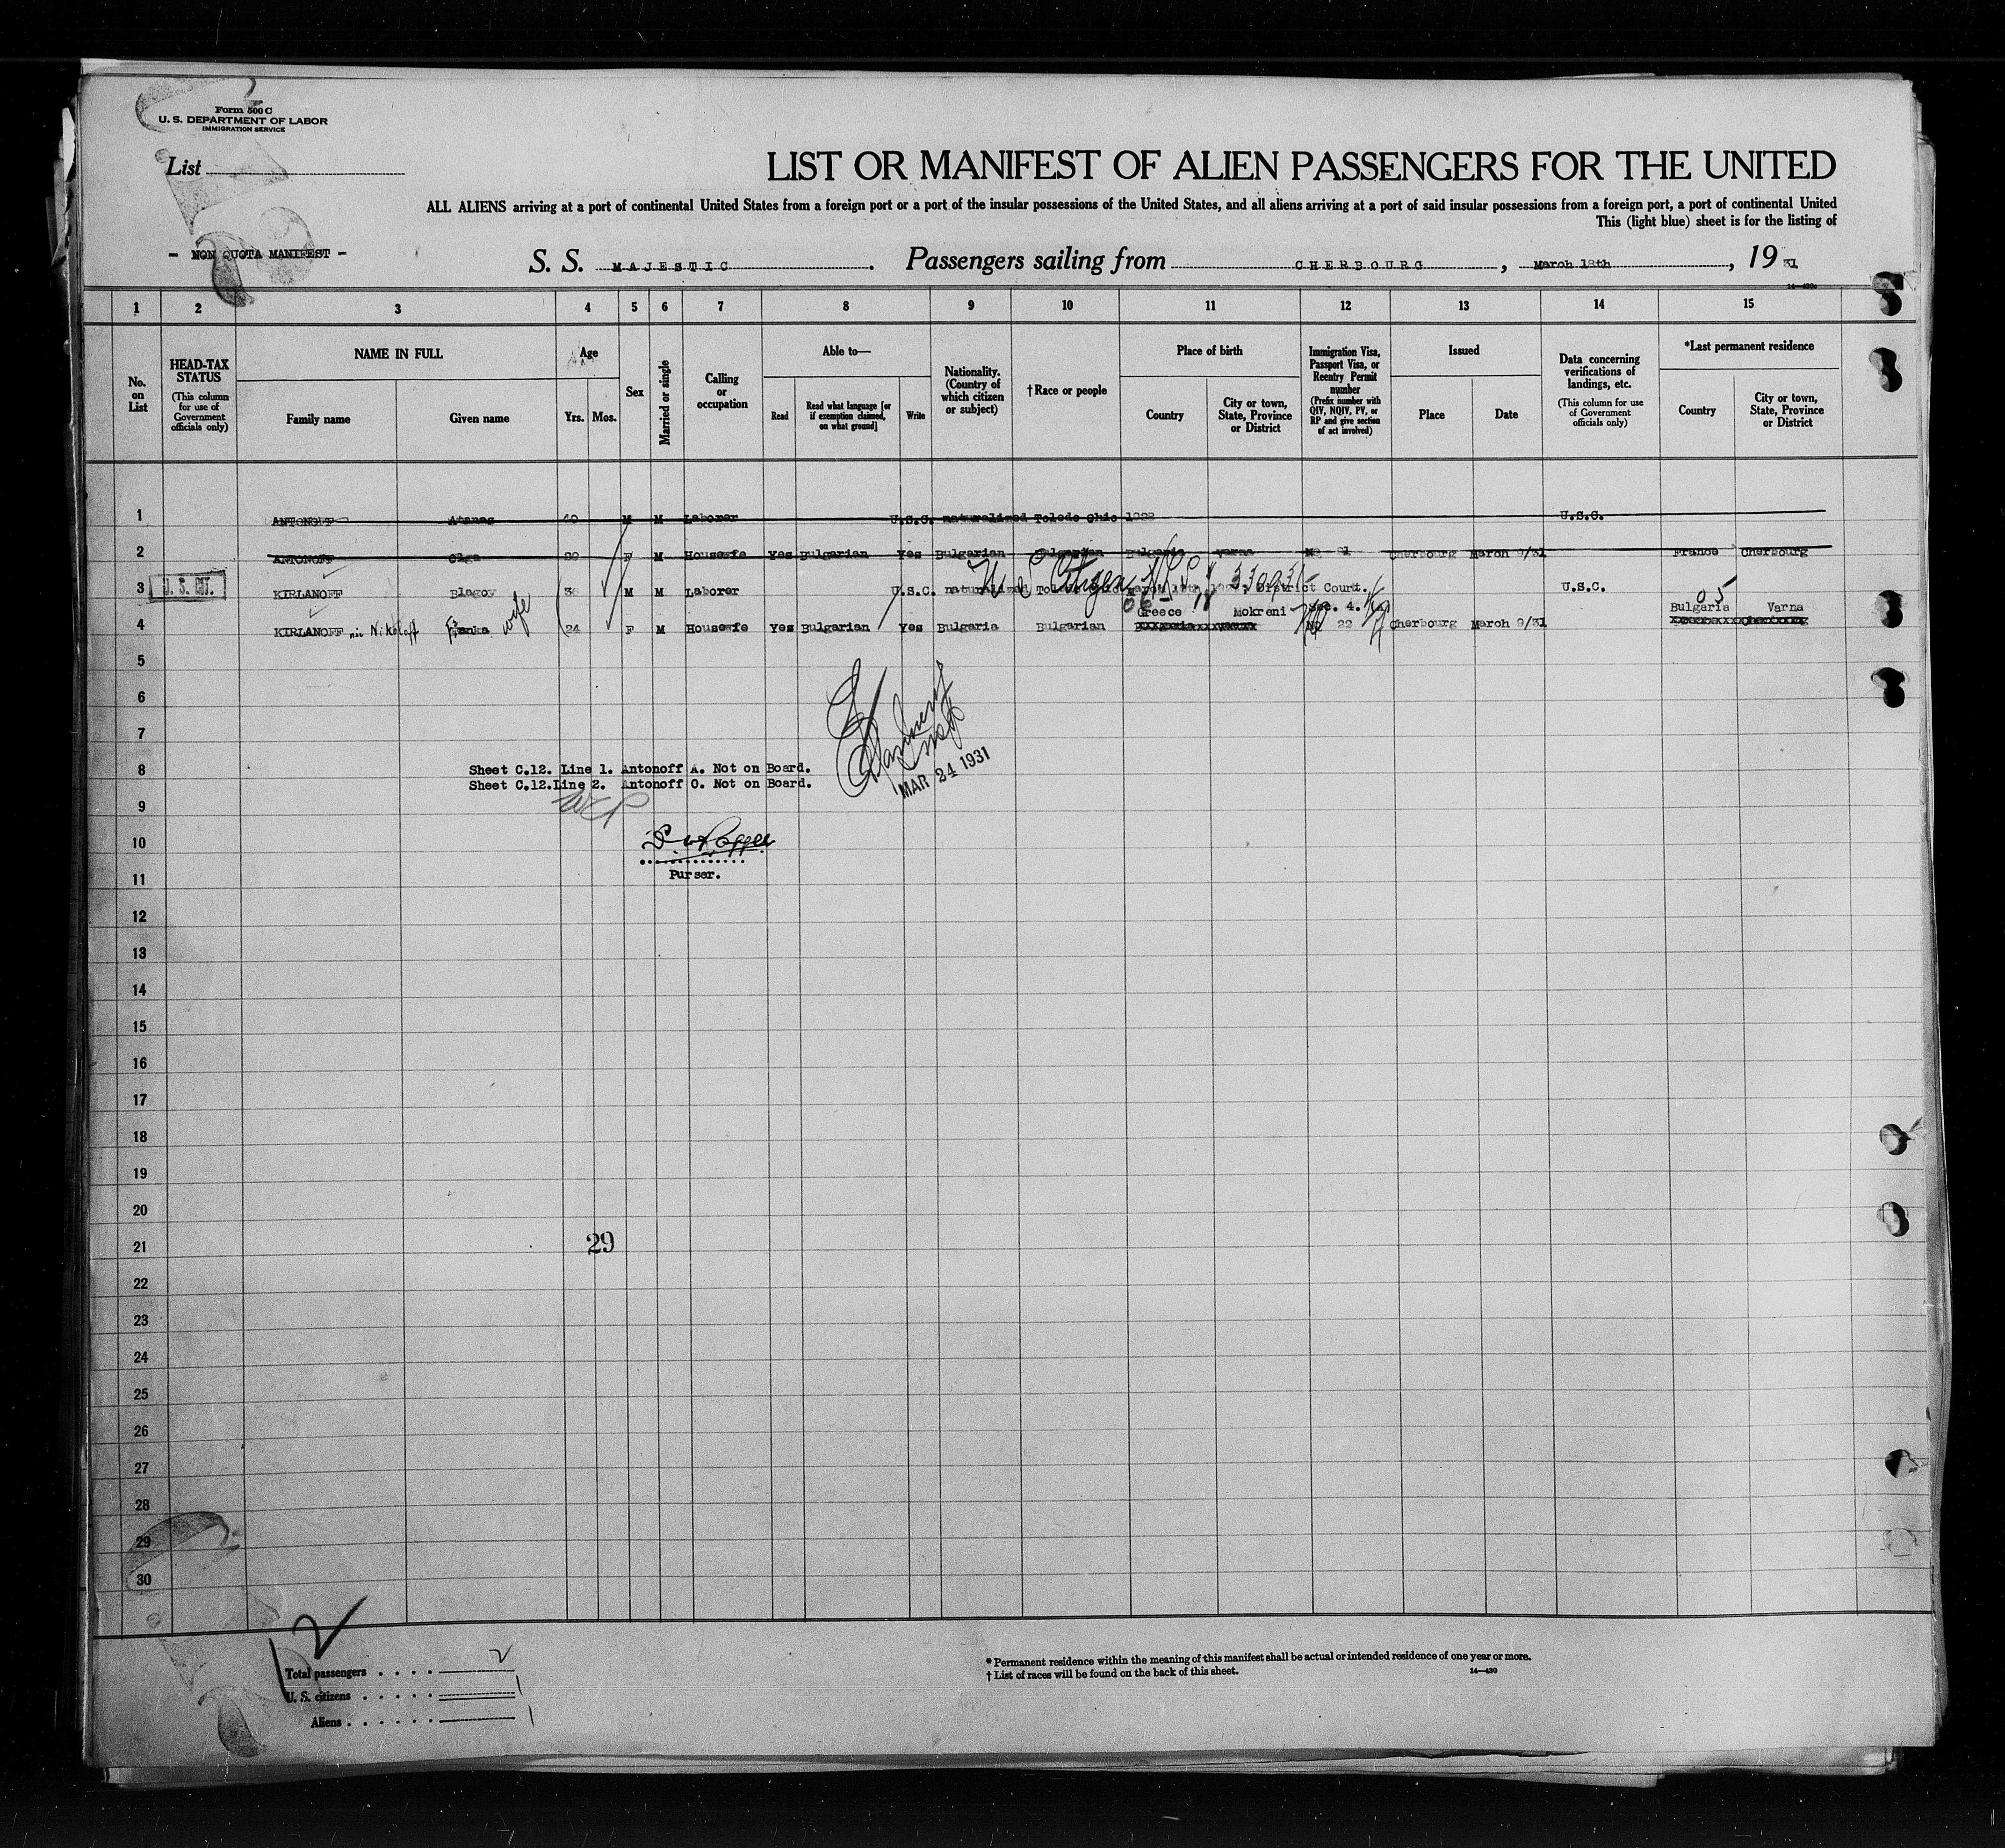 Form 500 C
U. S. DEPARTMENT OF LABOR
IMMIGRATION SERVICE
List
LIST OR MANIFEST OF ALIEN PASSENGERS FOR THE UNITED
ALL ALIENS arriving at a port of continental United States from a foreign port or a port of the insular possessions of the United States, and all aliens arriving at a port of said insular possessions from a foreign port, a port of continental United
This (light blue) sheet is for the listing of
- NON QUOTA MANIFEST -
S. S. MAJESTIC. Passengers sailing from CHERBOURG, March 18th, 19 31
1 2 3 4 5 6 7 8 9 10 11 12 13 14 15
No. on List
HEAD-TAX STATUS
(This column for use of Government officials only)
NAME IN FULL
Family name
Given name
Age
Yrs. Mos.
Sex
Married or single
Calling or occupation
Able to—
Read
Read what language [or if exemption claimed, on what ground]
Write
Nationality. (Country of which citizen or subject)
† Race or people
Place of birth
Country
City or town, State, Province or District
Immigration Visa, Passport Visa, or Reentry Permit number
(Prefix number with QIV, NQIV, PV, or RP and give section of act involved)
Issued
Place
Date
Data concerning verifications of landings, etc.
(This column for use of Government officials only)
*Last permanent residence
Country
City or town, State, Province or District
1 ANTONOFF Atanas 40 M M Laborer U.S.C. naturalized Toledo Ohio 1928 U.S.C.
2 ANTONOFF Olga F M Housewife Yes Bulgarian Yes Bulgarian Bulgarian Bulgaria Varna Cherbourg March 9/31 France Cherbourg
3 U. S. CIT. KIRLANOFF Blagoy 38 M M Laborer U.S.C. naturalized Toledo District Court. U.S.C.
U S Citizen
05
Greece Mokreni Sec. 4. Bulgaria Varna
4 KIRLANOFF Nikoloff wife 24 F M Housewife Yes Bulgarian Yes Bulgaria Bulgarian 22 Cherbourg March 9/31
5
6
7
8 Sheet C.12. Line 1. Antonoff A. Not on Board.
Sheet C.12.Line 2. Antonoff O. Not on Board.
MAR 24 1931
9
10
11 Purser.
12
13
14
15
16
17
18
19
20
21 29
22
23
24
25
26
27
28
29
30
12
Total passengers . . . . 2
U. S. citizens . . . . . 1
Aliens . . . . . . 1
* Permanent residence within the meaning of this manifest shall be actual or intended residence of one year or more.
† List of races will be found on the back of this sheet.
14—430